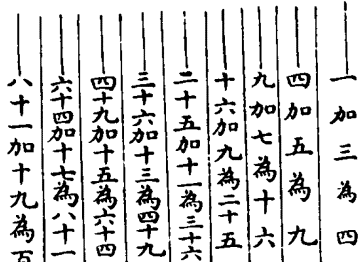 一加三為四
四加五為九
九加七為十六
十六加九為二十五
二十五加十一為三十六
三十六加十三為四十九
四十九加十五為六十四
六十四加十七為八十一
八十一加十九為百